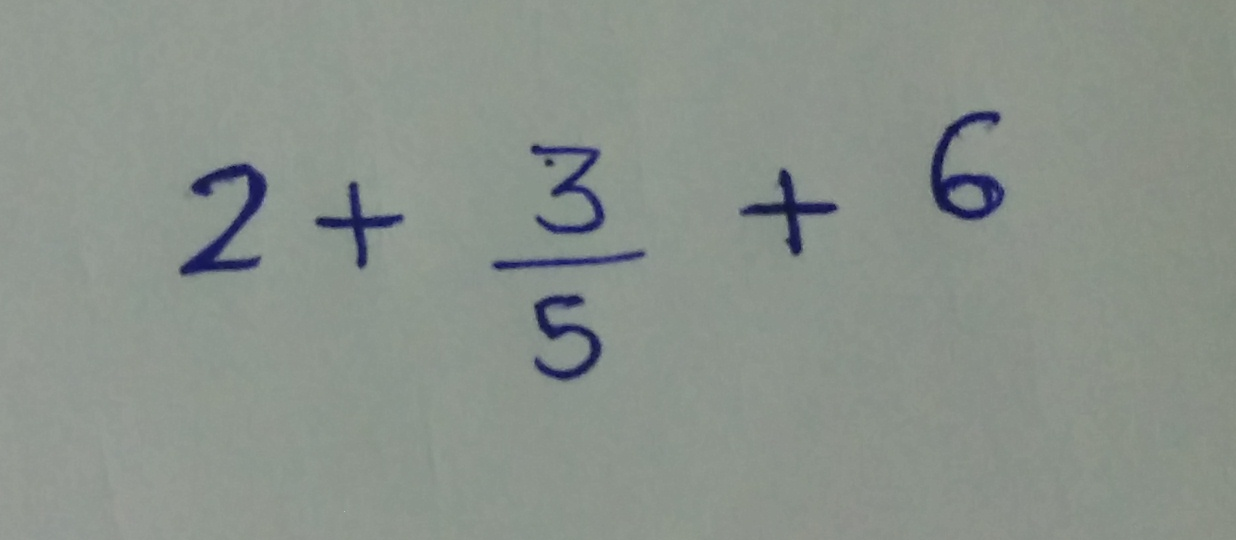 2 + \frac{3}{5} + 6